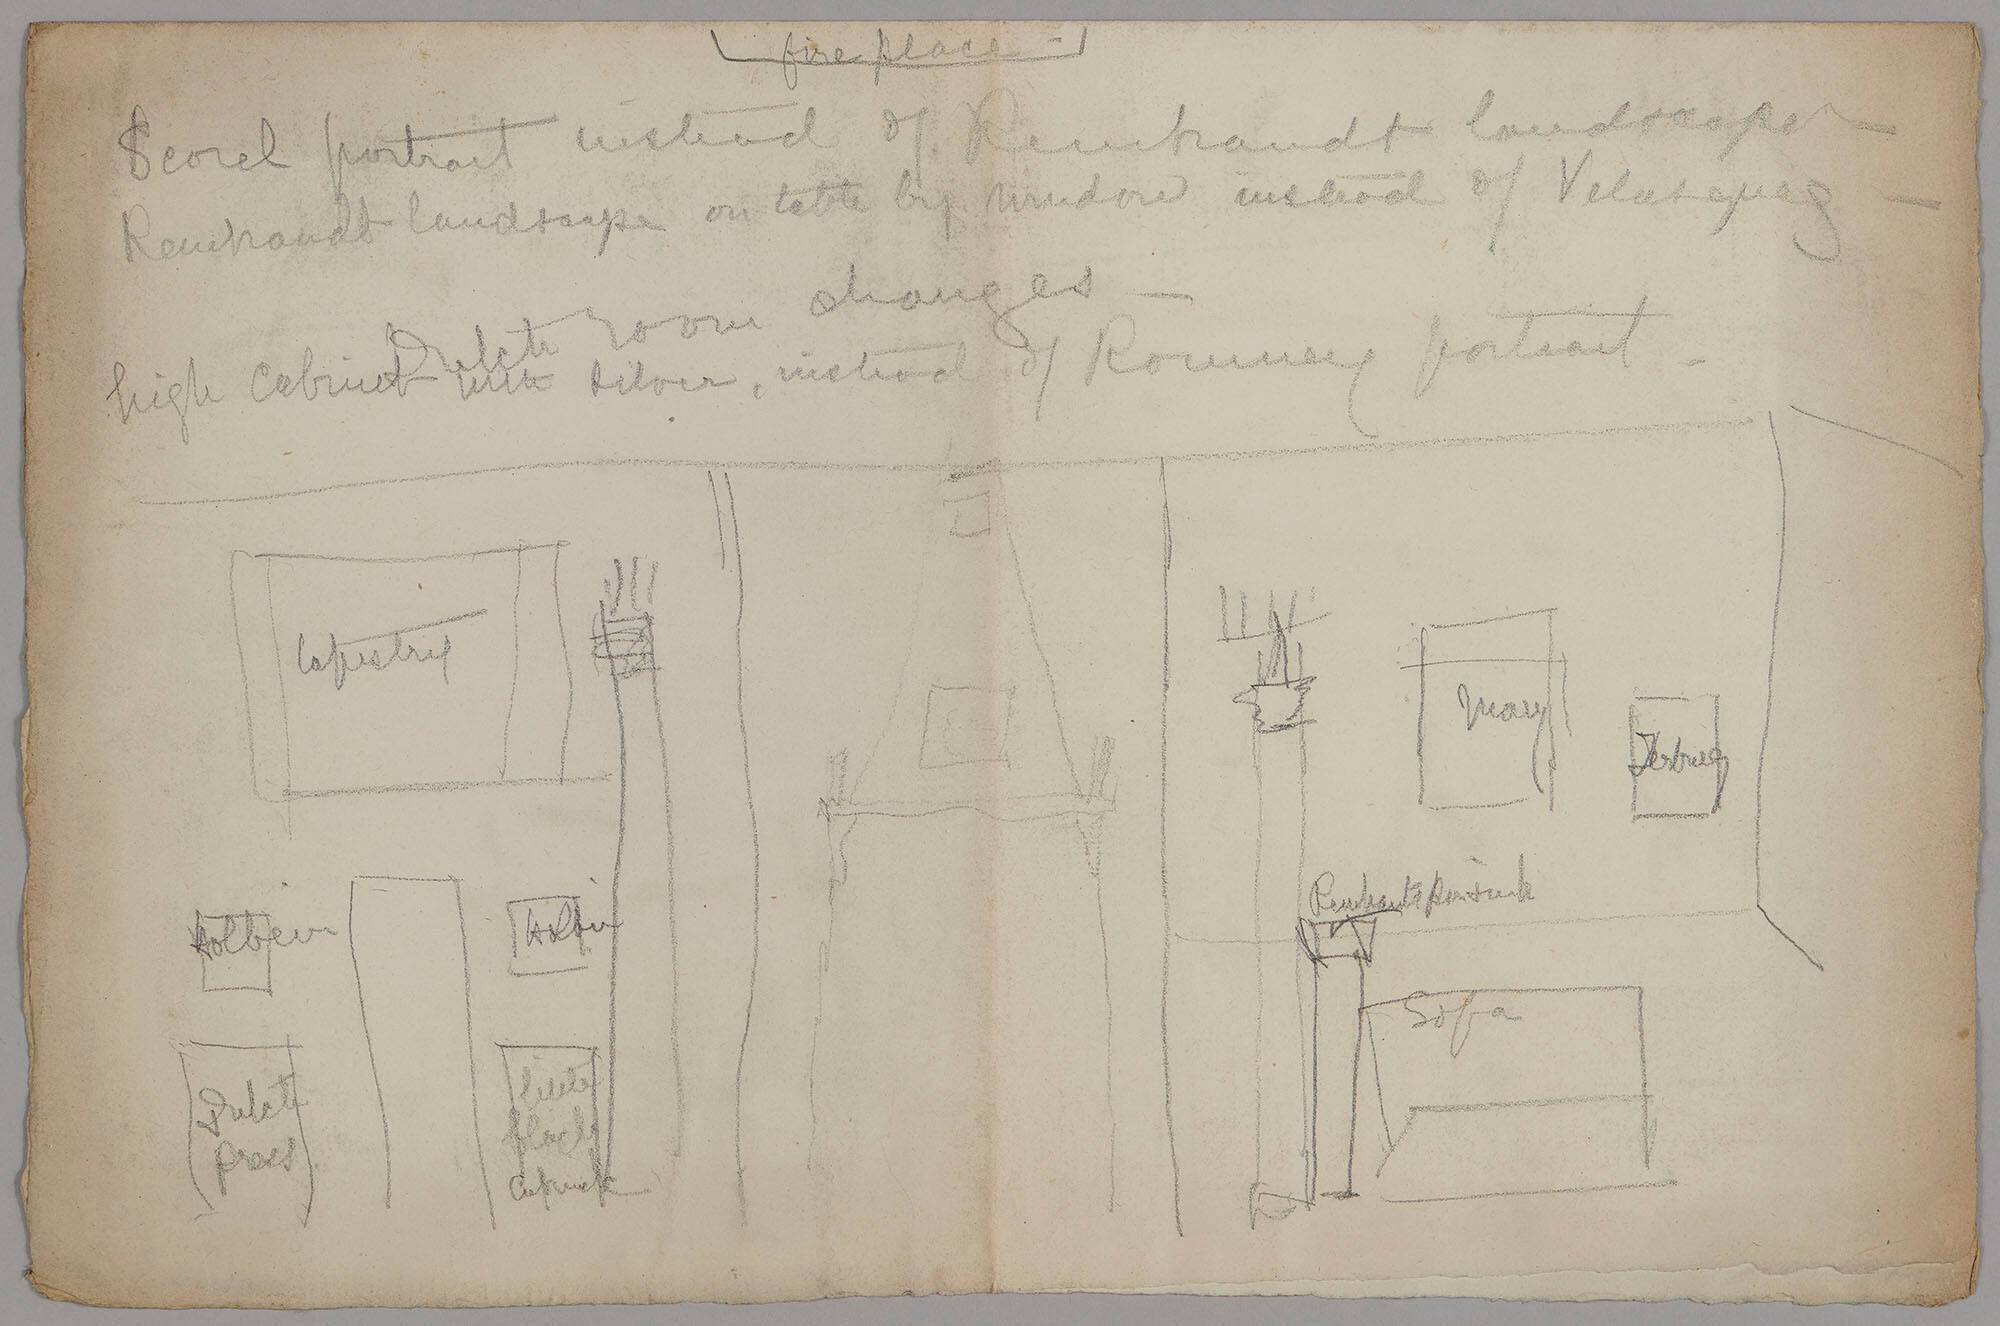 fireplace -
Scorel portrait instead of Rembrandt landscape -
Rembrandt landscape on table by window instead of Velasquez -
Dutch room changes -
high cabinet with silver, instead of Romney portrait -
tapestry
Mary
Terburg
Rembrandt's
Holbein
Holbein
Sofa
Dutch
press
little
black
cabinet